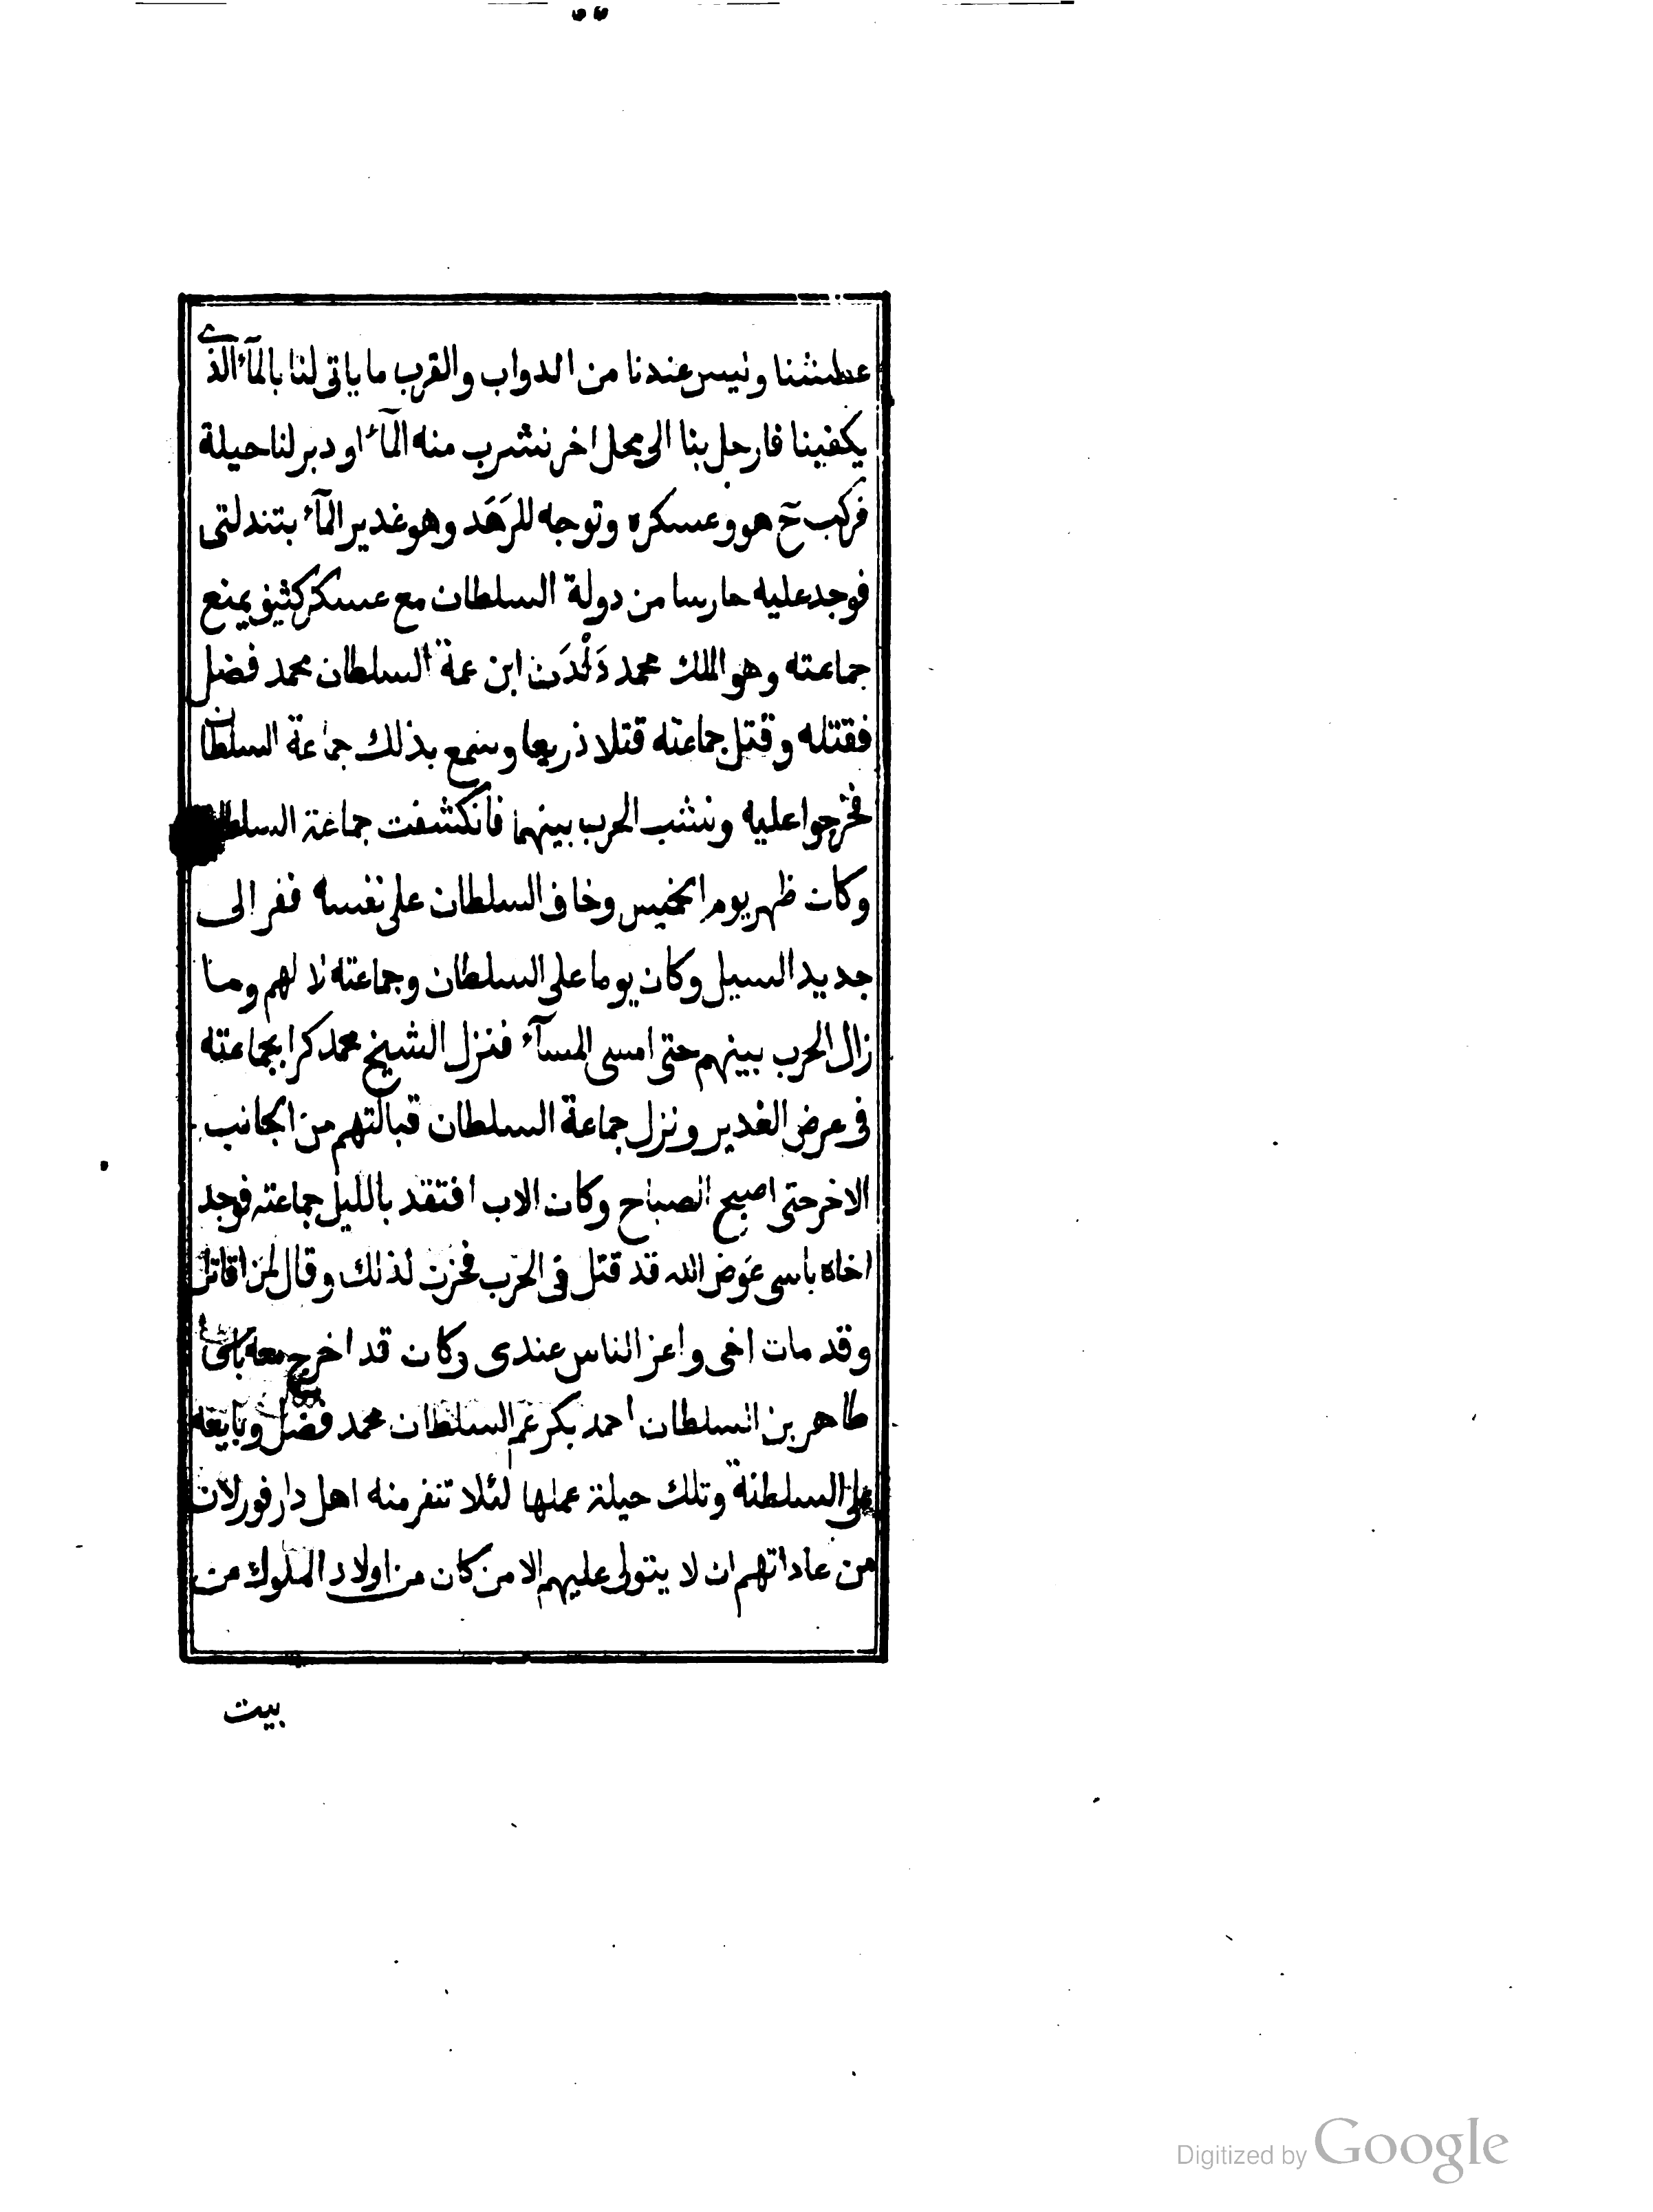 عطشنا وليس عندنا من الدواب والقرب ما ياتى لنا بالمآء الذى
يكفينا فارحل بنا الى محل اخر نشرب منه المآء او دبر لنا حيلة
فركب ح هو وعسكره وتوجه للرَهَد وهو غدير المآء بتندلتى
فوجد عليه حارسا من دولة السلطان مع عسكر كثيف يمنع
جماعته وهو الملك محمد دَلْدَن ابن عمة السلطان محمد فضل
فقتله وقتل جماعته قتلا ذريعا وسمع بذلك جماعة السلطان
فخرجوا عليه ونشب الحرب بينهما فانكشفت جماعة
وكان ظهر يوم الخميس وخاف السلطان على نفسه ففر الى
جديد السيل وكان يوما على السلطان وجماعته لا لهم وما
زال الحرب بينهم حتى امسى المسآء فنزل الشيخ محمد كرا بجماعته
فى عرض الغدير ونزل جماعة السلطان قبالتهم من الجانب
الاخر حتى اصبح الصباح وكان الاب افتقد بالليل جماعته فوجد
اخاه باسى عَوض الله قد قتل فى الحرب فحزن لذلك وقال لمن اقاتل
وقد مات اخى واعز الناس عندى وكان قد اخرج معه باسى
طاهر بن السلطان احمد بكر عم السلطان محمد فضل وبايعه
على السلطنة وتلك حيلة عملها لئلا تنفر منه اهل دارفور لان
من عاداتهم ان لا يتولى عليهم الا من كان من اولاد الملوك من
بيت
Digitized by Google